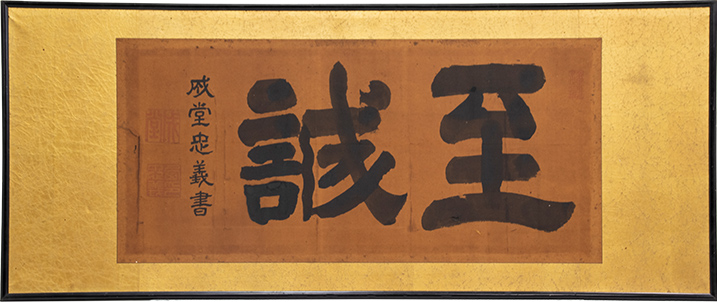 至誠
成堂忠義書